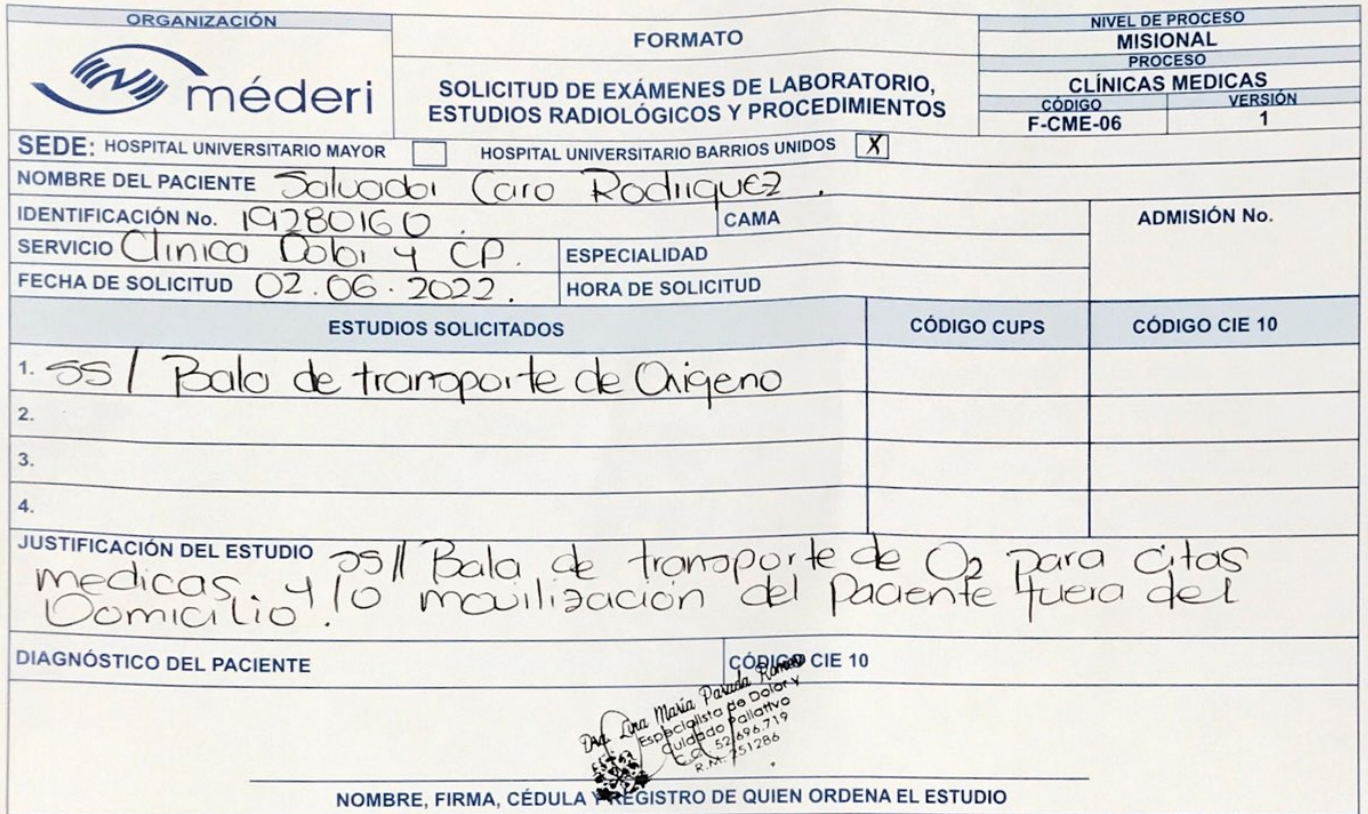 ORGANIZACIÓN
méderi
FORMATO
SOLICITUD DE EXÁMENES DE LABORATORIO,
ESTUDIOS RADIOLÓGICOS Y PROCEDIMIENTOS
NIVEL DE PROCESO
MISIONAL
PROCESO
CLÍNICAS MEDICAS
CÓDIGO VERSIÓN
F-CME-06 1
SEDE: HOSPITAL UNIVERSITARIO MAYOR HOSPITAL UNIVERSITARIO BARRIOS UNIDOS X
NOMBRE DEL PACIENTE Salvador Caro Rodriguez.
IDENTIFICACIÓN No. 19280160. CAMA ADMISIÓN No.
SERVICIO Clinica Dolor y CP. ESPECIALIDAD
FECHA DE SOLICITUD 02.06.2022. HORA DE SOLICITUD
ESTUDIOS SOLICITADOS CÓDIGO CUPS CÓDIGO CIE 10
1. SS/ Bala de transporte de Oxigeno
2.
3.
4.
JUSTIFICACIÓN DEL ESTUDIO SS// Bala de transporte de O2 para citas
medicas. y/o movilización del Paciente fuera del
Domicilio.
DIAGNÓSTICO DEL PACIENTE CÓDIGO CIE 10
Dra. Lina María Parada
Especialista de Dolor y
Cuidado Paliativo
C.C. 52.696.719
R.M. 251286
NOMBRE, FIRMA, CÉDULA Y REGISTRO DE QUIEN ORDENA EL ESTUDIO